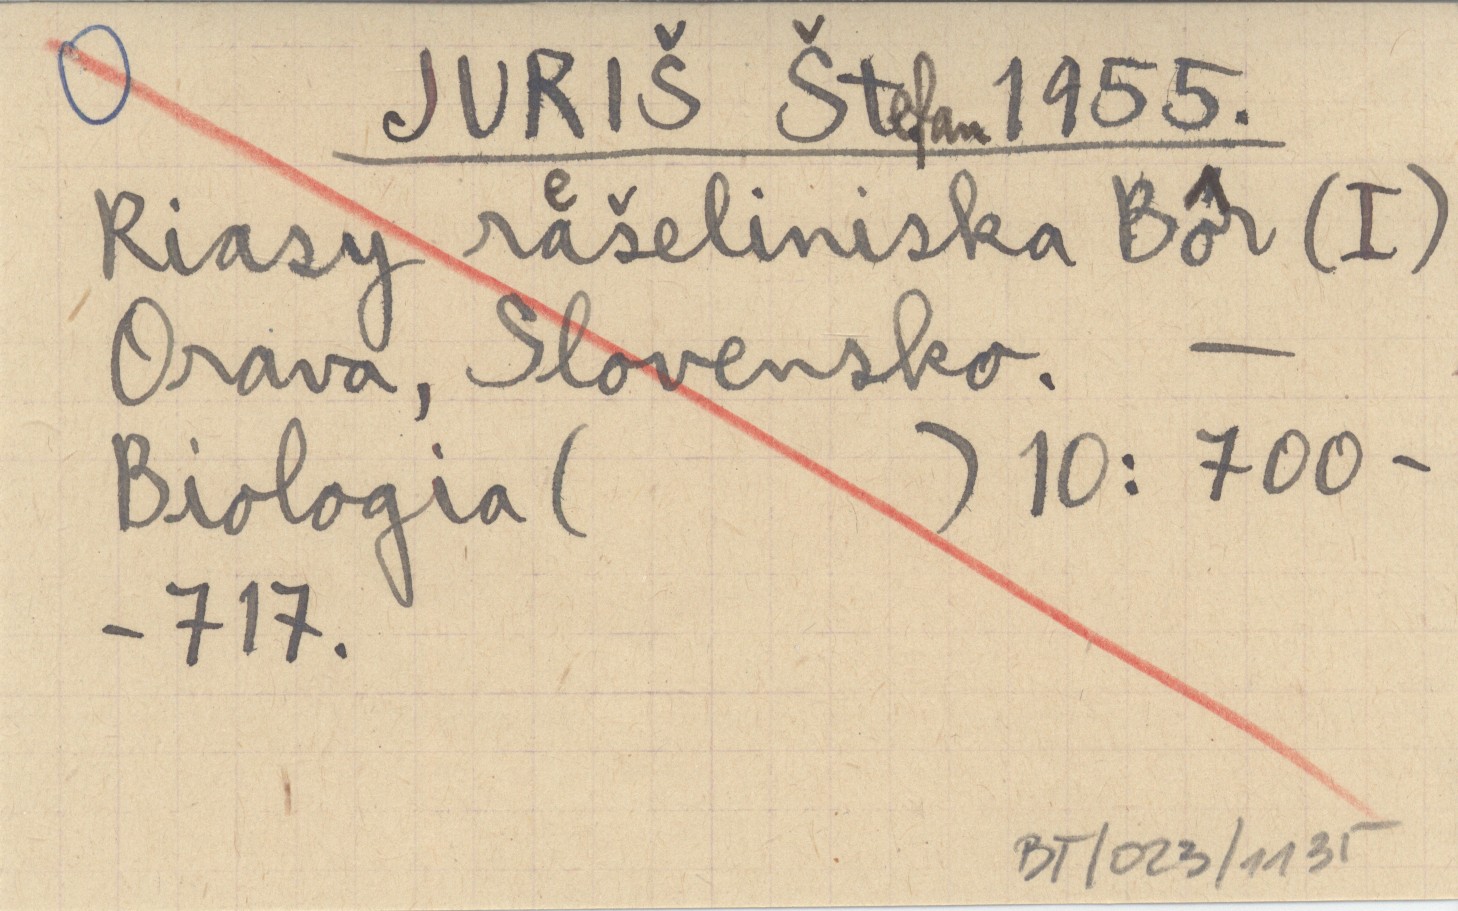 JURIŠ Štefan 1955.
Riasy rašeliniska Bôr (I)
Orava, Slovensko. —
Biologia ( ) 10: 700 -
- 717.
BT/023/1135